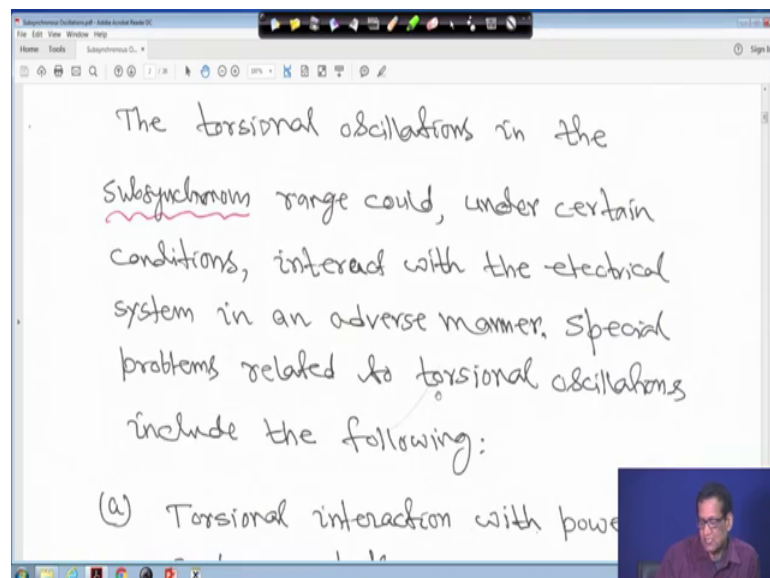 Subsynchronous Oscillations.pdf - Adobe Acrobat Reader DC
File Edit View Window Help
Home Tools Subsynchronous O... ×
Sign In
The torsional oscillations in the
subsynchronous range could, under certain
conditions, interact with the electrical
system in an adverse manner. Special
problems related to torsional oscillations
include the following:
(a) Torsional interaction with powe